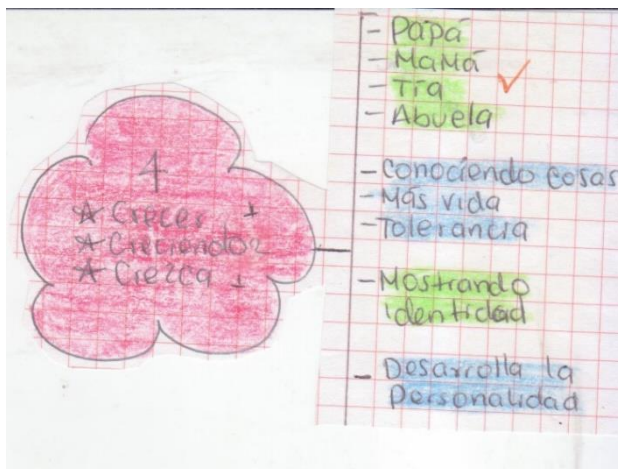 4
☆ Crecer 1
☆ Creciendo 2
☆ Crezca 1
- Papá
- Mamá
- Tía
- Abuela
- Conociendo cosas
- Más vida
- Tolerancia
- Mostrando
identidad
- Desarrolla la
Personalidad